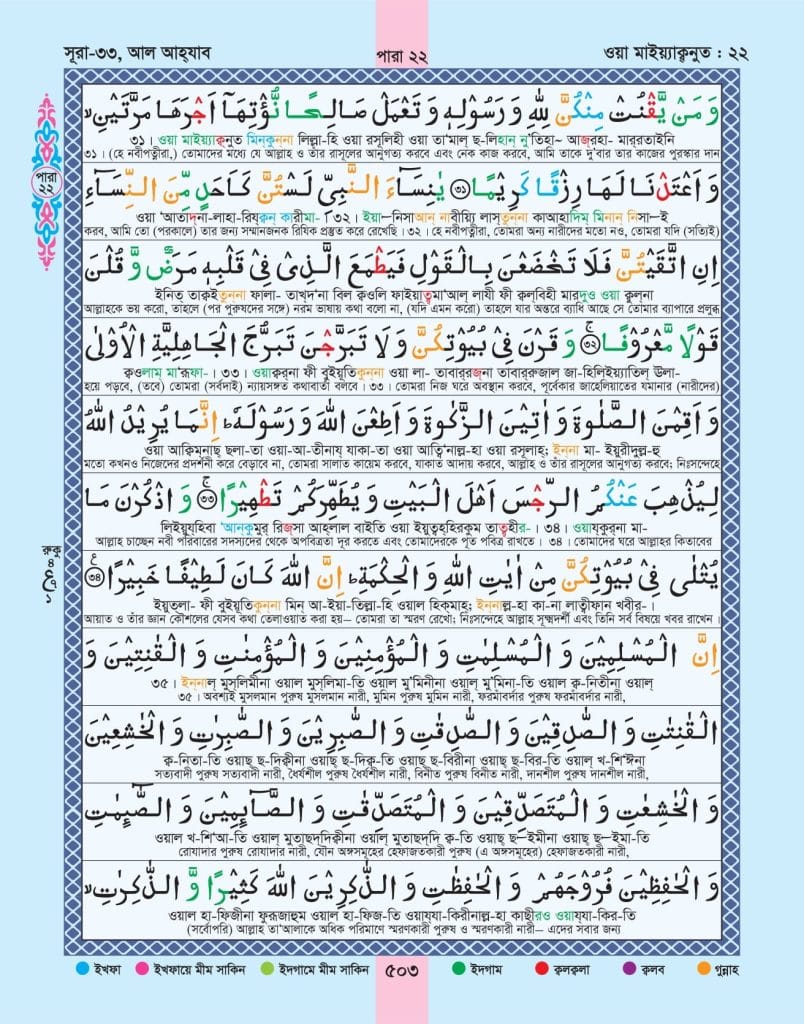 সূরা-৩৩, আল আহ্‌যাব
পারা ২২
ওয়া মাইয়্যাক্বনুত : ২২
পারা
২২
وَ مَنْ يَّقْنُتْ مِنْكُنَّ لِلّٰهِ وَ رَسُوْلِهٖ وَ تَعْمَلْ صَالِحًا نُّؤْتِهَاۤ اَجْرَهَا مَرَّتَيْنِۙ
৩১। ওয়া মাইয়্যাক্বনুত মিন্‌কুন্‌না লিল্লা-হি ওয়া রসূলিহী ওয়া তা'মাল্‌ ছ-লিহান্‌ নু'তিহা~ আজ্‌রহা- মার্‌রতাইনি
৩১। (হে নবীপত্নীরা,) তোমাদের মধ্যে যে আল্লাহ ও তাঁর রাসূলের আনুগত্য করবে এবং নেক কাজ করবে, আমি তাকে দু'বার তার কাজের পুরস্কার দান
وَ اَعْتَدْنَا لَهَا رِزْقًا كَرِيْمًا ﴿۳۱﴾ يٰنِسَآءَ النَّبِيِّ لَسْتُنَّ كَاَحَدٍ مِّنَ النِّسَآءِ
ওয়া 'আতাদ্‌না-লাহা-রিয্‌ক্বন্‌ কারীমা-। ৩২। ইয়া–নিসাআন্‌ নাবীয়্যি লাস্‌তুন্‌না কাআহাদিম্‌ মিনান্‌ নিসা–ই
করব, আমি তো (পরকালে) তার জন্য সম্মানজনক রিযিক প্রস্তুত করে রেখেছি। ৩২। হে নবীপত্নীরা, তোমরা অন্য নারীদের মতো নও, তোমরা যদি (সত্যিই)
اِنِ اتَّقَيْتُنَّ فَلَا تَخْضَعْنَ بِالْقَوْلِ فَيَطْمَعَ الَّذِيْ فِيْ قَلْبِهٖ مَرَضٌ وَّ قُلْنَ
ইনিত্‌ তাক্বইতুন্‌না ফালা- তাখ্‌দ'না বিল ক্বওলি ফাইয়াত্বমা'আল্‌ লাযী ফী ক্বল্‌বিহী মারদুও ওয়া ক্বুল্‌না
আল্লাহকে ভয় করো, তাহলে (পর পুরুষদের সঙ্গে) নরম ভাষায় কথা বলো না, (যদি এমন করো) তাহলে যার অন্তরে ব্যাধি আছে সে তোমার ব্যাপারে প্রলুব্ধ
قَوْلًا مَّعْرُوْفًا ﴿۳۲﴾ وَ قَرْنَ فِيْ بُيُوْتِكُنَّ وَ لَا تَبَرَّجْنَ تَبَرُّجَ الْجَاهِلِيَّةِ الْاُوْلٰى
ক্বওলাম্‌ মা'রূফা-। ৩৩। ওয়াক্বর্‌না ফী বুইয়ূতিকুন্‌না ওয়া লা- তাবার্‌রজ্‌না তাবার্‌রুজাল জা-হিলিইয়্যাতিল্‌ ঊলা-
হয়ে পড়বে, (তবে) তোমরা (সর্বদাই) ন্যায়সঙ্গত কথাবার্তা বলবে। ৩৩। তোমরা নিজ ঘরে অবস্থান করবে, পূর্বেকার জাহেলিয়াতের যমানার (নারীদের)
وَ اَقِمْنَ الصَّلٰوةَ وَ اٰتِيْنَ الزَّكٰوةَ وَ اَطِعْنَ اللهَ وَ رَسُوْلَهٗ ؕ اِنَّمَا يُرِيْدُ اللهُ
ওয়া আক্বিম্‌নাছ্‌ ছলা-তা ওয়া-আ-তীনায্‌ যাকা-তা ওয়া আত্বি'নাল্ল-হা ওয়া রসূলাহ্‌; ইন্‌না মা- ইয়ুরীদুল্ল-হু
মতো কখনও নিজেদের প্রদর্শনী করে বেড়াবে না, তোমরা সালাত কায়েম করবে, যাকাত আদায় করবে, আল্লাহ ও তাঁর রাসূলের আনুগত্য করবে; নিঃসন্দেহে
لِيُذْهِبَ عَنْكُمُ الرِّجْسَ اَهْلَ الْبَيْتِ وَ يُطَهِّرَكُمْ تَطْهِيْرًا ﴿۳۳﴾ وَ اذْكُرْنَ مَا
লিইয়ুয্‌হিবা 'আন্‌কুমুর্‌ রিজ্‌সা আহ্‌লাল বাইতি ওয়া ইয়ুত্বহ্‌হিরকুম তাত্বহীর-। ৩৪। ওয়ায্‌কুর্‌না মা-
আল্লাহ চাচ্ছেন নবী পরিবারের সদস্যদের থেকে অপবিত্রতা দূর করতে এবং তোমাদেরকে পূত পবিত্র রাখতে। ৩৪। তোমাদের ঘরে আল্লাহর কিতাবের
রুকু
يُتْلٰى فِيْ بُيُوْتِكُنَّ مِنْ اٰيٰتِ اللهِ وَ الْحِكْمَةِ ؕ اِنَّ اللهَ كَانَ لَطِيْفًا خَبِيْرًا ﴿۳۴﴾
ইয়ুত্‌লা- ফী বুইয়ূতিকুন্‌না মিন্‌ আ-ইয়া-তিল্লা-হি ওয়াল হিক্‌মাহ্‌; ইন্‌নাল্ল-হা কা-না লাত্বীফান খবীর-।
আয়াত ও তাঁর জ্ঞান কৌশলের যেসব কথা তেলাওয়াত করা হয়– তোমরা তা স্মরণ রেখো; নিঃসন্দেহে আল্লাহ সূক্ষ্মদর্শী এবং তিনি সর্ব বিষয়ে খবর রাখেন।
اِنَّ الْمُسْلِمِيْنَ وَ الْمُسْلِمٰتِ وَ الْمُؤْمِنِيْنَ وَ الْمُؤْمِنٰتِ وَ الْقٰنِتِيْنَ وَ
৩৫। ইন্‌নাল্‌ মুস্‌লিমীনা ওয়াল মুস্‌লিমা-তি ওয়াল মু'মিনীনা ওয়াল্‌ মু'মিনা-তি ওয়াল্‌ ক্ব-নিতীনা ওয়াল্‌
৩৫। অবশ্যই মুসলমান পুরুষ মুসলমান নারী, মুমিন পুরুষ মুমিন নারী, ফরমাঁবর্দার পুরুষ ফরমাঁবর্দার নারী,
الْقٰنِتٰتِ وَ الصّٰدِقِيْنَ وَ الصّٰدِقٰتِ وَ الصّٰبِرِيْنَ وَ الصّٰبِرٰتِ وَ الْخٰشِعِيْنَ
ক্ব-নিতা-তি ওয়াছ্‌ ছ-দিক্বীনা ওয়াছ্‌ ছ-দিক্ব-তি ওয়াছ্‌ ছ-বিরীনা ওয়াছ্‌ ছ-বির-তি ওয়াল্‌ খ-শি'ঈনা
সত্যবাদী পুরুষ সত্যবাদী নারী, ধৈর্যশীল পুরুষ ধৈর্যশীল নারী, বিনীত পুরুষ বিনীত নারী, দানশীল পুরুষ দানশীল নারী,
وَ الْخٰشِعٰتِ وَ الْمُتَصَدِّقِيْنَ وَ الْمُتَصَدِّقٰتِ وَ الصَّآئِمِيْنَ وَ الصّٰٓئِمٰتِ
ওয়াল খ-শি'আ-তি ওয়াল্‌ মুতাছদ্‌দিক্বীনা ওয়াল্‌ মুতাছদ্‌দি ক্ব-তি ওয়াছ্‌ ছ–ইমীনা ওয়াছ্‌ ছ–ইমা-তি
রোযাদার পুরুষ রোযাদার নারী, যৌন অঙ্গসমূহের হেফাজতকারী পুরুষ (এ অঙ্গসমূহের) হেফাজতকারী নারী,
وَ الْحٰفِظِيْنَ فُرُوْجَهُمْ وَ الْحٰفِظٰتِ وَ الذّٰكِرِيْنَ اللهَ كَثِيْرًا وَّ الذّٰكِرٰتِۙ
ওয়াল হা-ফিজীনা ফুরূজাহুম ওয়াল হা-ফিজ-তি ওয়ায্‌যা-কিরীনাল্ল-হা কাছীরও ওয়ায্‌যা-কির-তি
(সর্বোপরি) আল্লাহ তা'আলাকে অধিক পরিমাণে স্মরণকারী পুরুষ ও স্মরণকারী নারী– এদের সবার জন্য
ইখফা
ইখফায়ে মীম সাকিন
ইদগামে মীম সাকিন
৫০৩
ইদগাম
ক্বলক্বলা
ক্বলব
গুন্নাহ